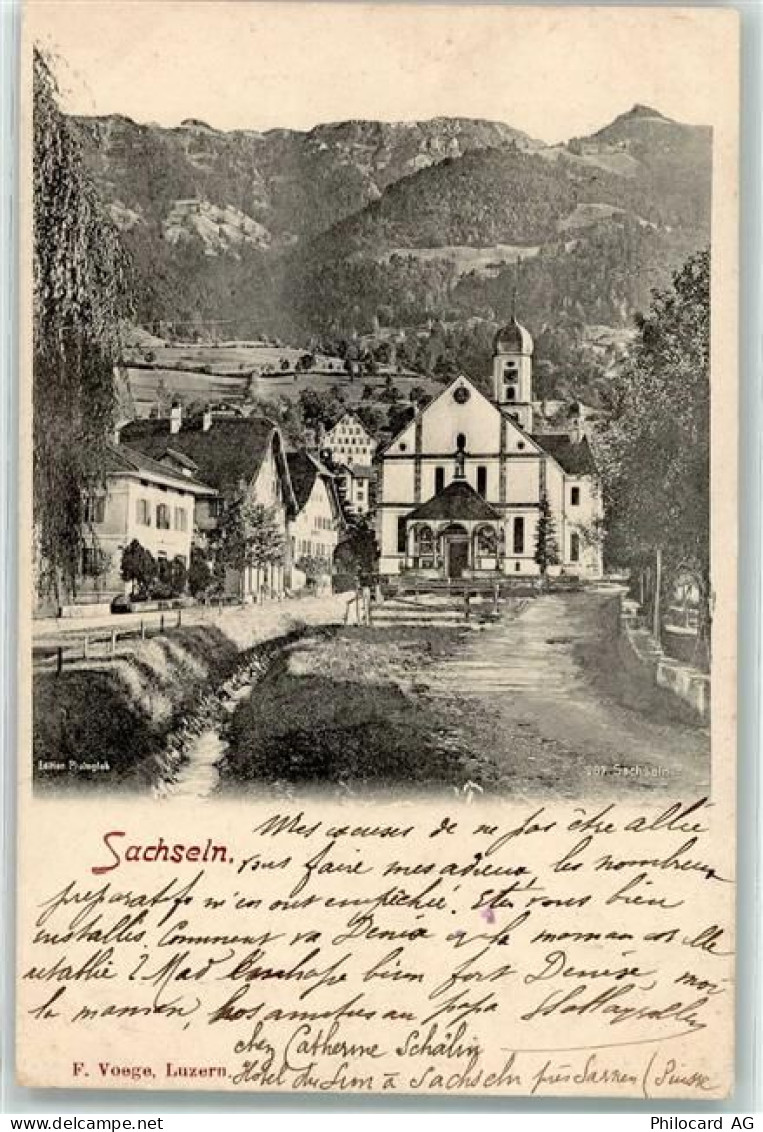 Edition Photoglob
267 Sachseln
Sachseln.
Mes excuses de ne pas être allée
vous faire mes adieux les nombreux
préparatifs m'en ont empêché. Etes vous bien
installés. Comment va Denise et la maman est elle
rétablie ? Mad embrasse bien fort Denise, moi
la maman, bos amitiés au papa
chez Catherine Schälin
Hotel du à Sachseln près Sarnen (Suisse)
F. Voege, Luzern.
Philocard AG